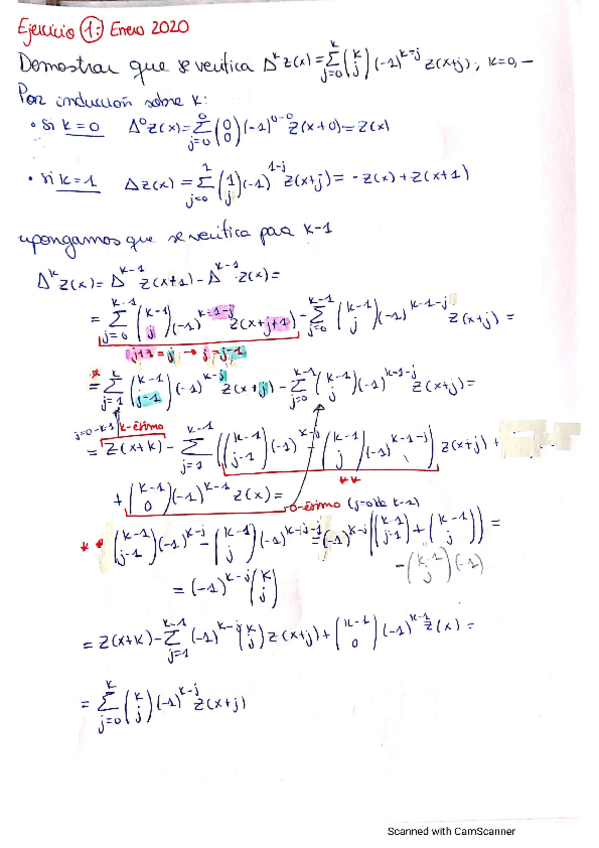 Ejercicio 1: Enero 2020
Demostrar que se verifica Δ^k z(x) = Σ_{j=0}^{k} (k j) (-1)^{k-j} z(x+j), k=0, -
Por inducción sobre k:
• Si k=0 Δ^0 z(x) = Σ_{j=0}^{0} (0 0) (-1)^{0-0} z(x+0) = z(x)
• si k=1 Δz(x) = Σ_{j=0}^{1} (1 j) (-1)^{1-j} z(x+j) = -z(x)+z(x+1)
upongamos que se verifica para k-1
Δ^k z(x) = Δ^{k-1} z(x+1) - Δ^{k-1} z(x) =
= Σ_{j=0}^{k-1} (k-1 j) (-1)^{k-1-j} z(x+j+1) - Σ_{j=0}^{k-1} (k-1 j) (-1)^{k-1-j} z(x+j) =
j+1=j → j=j-1
* = Σ_{j=1}^{k} (k-1 j-1) (-1)^{k-j} z(x+j) - Σ_{j=0}^{k-1} (k-1 j) (-1)^{k-1-j} z(x+j) =
j=0-k-1 k-ésimo
= z(x+k) - Σ_{j=1}^{k-1} ((k-1 j-1) (-1)^{k-j} - (k-1 j) (-1)^{k-1-j}) z(x+j) +
**
+ (k-1 0) (-1)^{k-1} z(x) = 0-ésimo (j=0 de k-1)
** (k-1 j-1) (-1)^{k-j} - (k-1 j) (-1)^{k-j-1} = (-1)^{k-j} ((k-1 j-1) + (k-1 j)) =
-(k-1 j) (-1)
= (-1)^{k-j} (k j)
= z(x+k) - Σ_{j=1}^{k-1} (-1)^{k-j} (k j) z(x+j) + (k-1 0) (-1)^{k-1} z(x) =
= Σ_{j=0}^{k} (k j) (-1)^{k-j} z(x+j)
Scanned with CamScanner